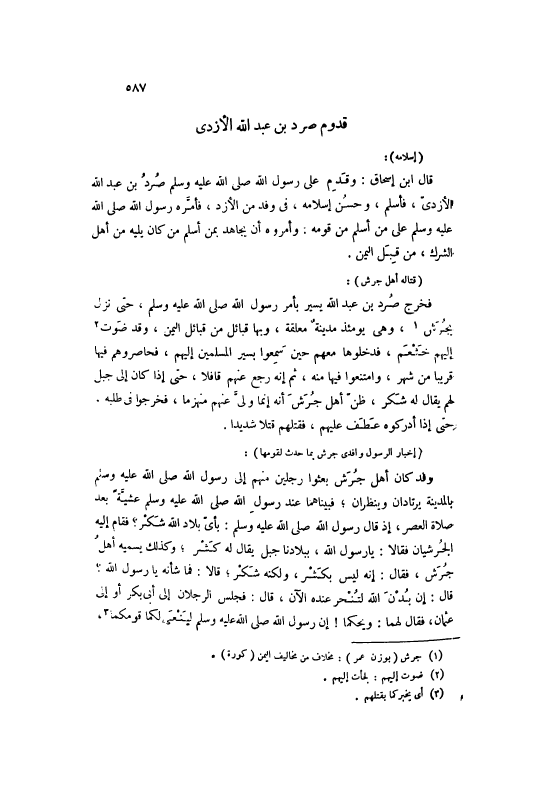 ٥٨٧
قدوم صرد بن عبد الله الأزدى
(إسلامه):
قال ابن إسحاق : وقَدِم على رسول الله صلى الله عليه وسلم صُرَدُ بن عبد الله
الأزدىّ ، فأسلم ، وحسُن إسلامه ، فى وفد من الأزد ، فأمَّره رسول الله صلى الله
عليه وسلم على من أسلم من قومه : وأمروه أن يجاهد بمن أسلم من كان يليه من أهل
الشرك ، من قِبَل اليمن .
(قتاله أهل جرش) :
فخرج صُرَد بن عبد الله يسير بأمر رسول الله صلى الله عليه وسلم ، حتى نزل
بجُرَش ١ ، وهى يومئذ مدينةٌ معلقة ، وبها قبائل من قبائل اليمن ، وقد ضَوَت ٢
إليهم خَثْعَم ، فدخلوها معهم حين سَمِعوا بسير المسلمين إليهم ، فحاصروهم فيها
قريبا من شهر ، وامتنعوا فيها منه ، ثم إنه رجع عنهم قافلا ، حتى إذا كان إلى جبل
لهم يقال له شَكَر ، ظنّ أهل جُرَشَ أنه إنما ولىَّ عنهم منهزما ، فخرجوا فى طلبه .
حتى إذا أدركوه عَطَف عليهم ، فقتلهم قتلا شديدا .
(إخبار الرسول وافدى جرش بما حدث لقومها) :
وقد كان أهل جُرَش بعثوا رجلين منهم إلى رسول الله صلى الله عليه وسلم
بالمدينة يرتادان وينظران ؛ فبيناهما عند رسول الله صلى الله عليه وسلم عشيَّةً بعد
صلاة العصر ، إذ قال رسول الله صلى الله عليه وسلم : بأىّ بلاد الله شَكْر؟ فقام إليه
الجُرشيان فقالا : يارسول الله ، ببلادنا جبل يقال له كَشْر ؛ وكذلك يسميه أهلُ
جُرَش ، فقال : إنه ليس بكَشْر ، ولكنه شَكْر ؛ قالا : فما شأنه يا رسول الله ؟
قال : إن بُدْنَ الله لتُنْحر عنده الآن ، قال : فجلس الرجلان إلى أبى بكر أو إلى
عثمان ، فقال لهما : ويحكما ! إن رسول الله صلى الله عليه وسلم ليَنْعَى لكما قومكما ٣ ،
(١) جرش (بوزن عمر) : مخلاف من مخاليف اليمن (كورة) .
(٢) ضوت إليهم : لجأت إليهم .
(٣) أى يخبركما بقتلهم .